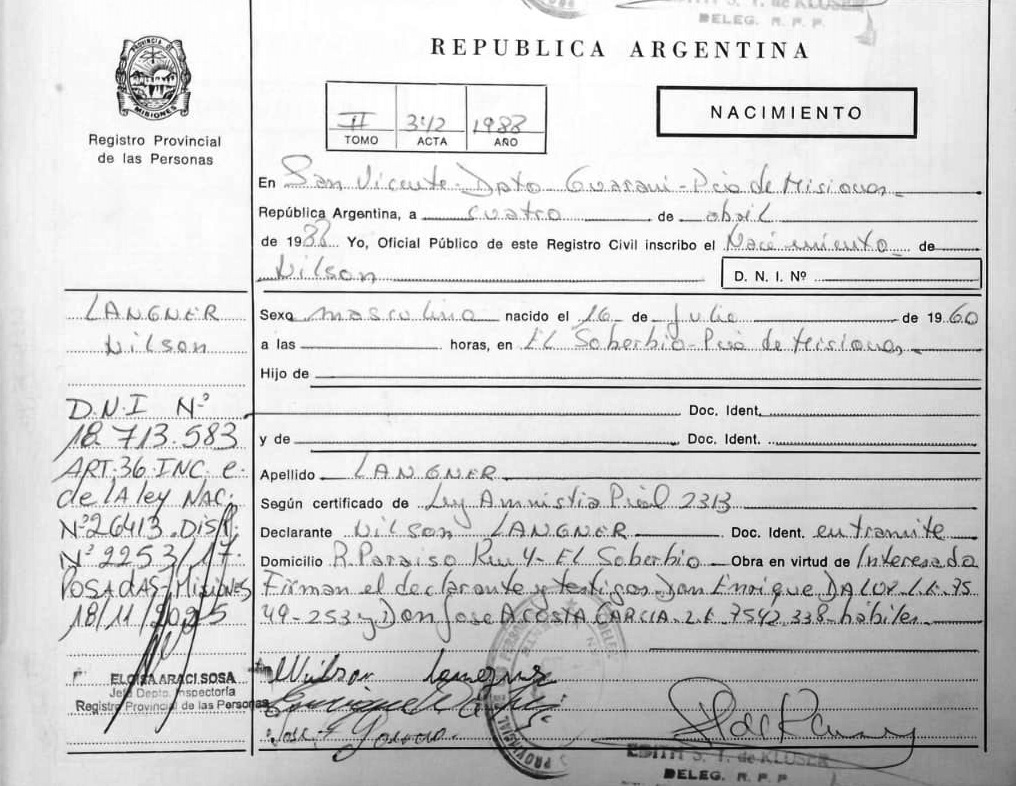 DELEG. R. P. P.
REPUBLICA ARGENTINA
PROVINCIA DE MISIONES
Registro Provincial
de las Personas
II 342 1988
TOMO ACTA AÑO
NACIMIENTO
En San Vicente - Dpto Guaraní - Pcia de Misiones
República Argentina, a cuatro de abril
de 1988 Yo, Oficial Público de este Registro Civil inscribo el Nacimiento de
Vilson
D. N. I. Nº
LANGNER
Vilson
D.N.I Nº
18 713.583
ART.36 INC e.
de LA ley NAC.
Nº 26413. DISP.
Nº 2253/17.
POSADAS, Misiones
18/11/2025
ELOISA ARACI SOSA
Jefa Depto. Inspectoria
Registro Provincial de las Personas
Sexo masculino nacido el 16 de Julio de 1960
a las horas, en El Soberbio - Pcia de Misiones
Hijo de
Doc. Ident.
y de Doc. Ident.
Apellido LANGNER
Según certificado de Ley Amnistia Pcial 2313
Declarante Vilson LANGNER Doc. Ident. en tramite
Domicilio R. Paraiso Km 4 - El Soberbio - Obra en virtud de Interesado
Firman el declarante y testigos Don Enrique L.E. 75
49-253 y Don Jose ACOSTA GARCIA L.E. 7542.338 - hábiles
EDITH S. T. de KLUSER
DELEG. R. P. P